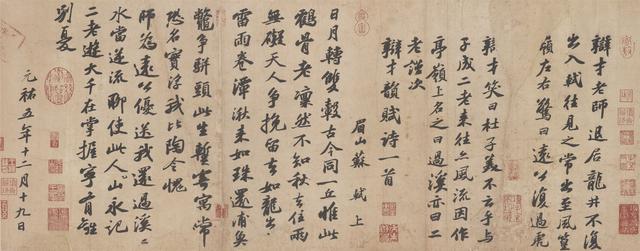 辯才老師退居龍井不復
出入軾往見之常出至風篁
嶺左右驚曰遠公復過虎
辯才笑曰杜子美不云乎與
子成二老來往亦風流因作
亭嶺上名之曰過溪亦曰二
老謹次
辯才韻賦詩一首
眉山蘇軾上
日月轉雙轂古今同一丘惟此
鶴骨老凜然不知秋去住兩
無礙天人爭挽留去如龍出
雷雨卷潭湫來如珠還浦魚
鱉爭駢頭此生暫寄寓常
恐名實浮我比陶令愧
師為遠公優送我還過溪溪
水當逆流聊使此人山永記
二老遊大千在掌握寧有離
別憂
元祐五年十二月十九日